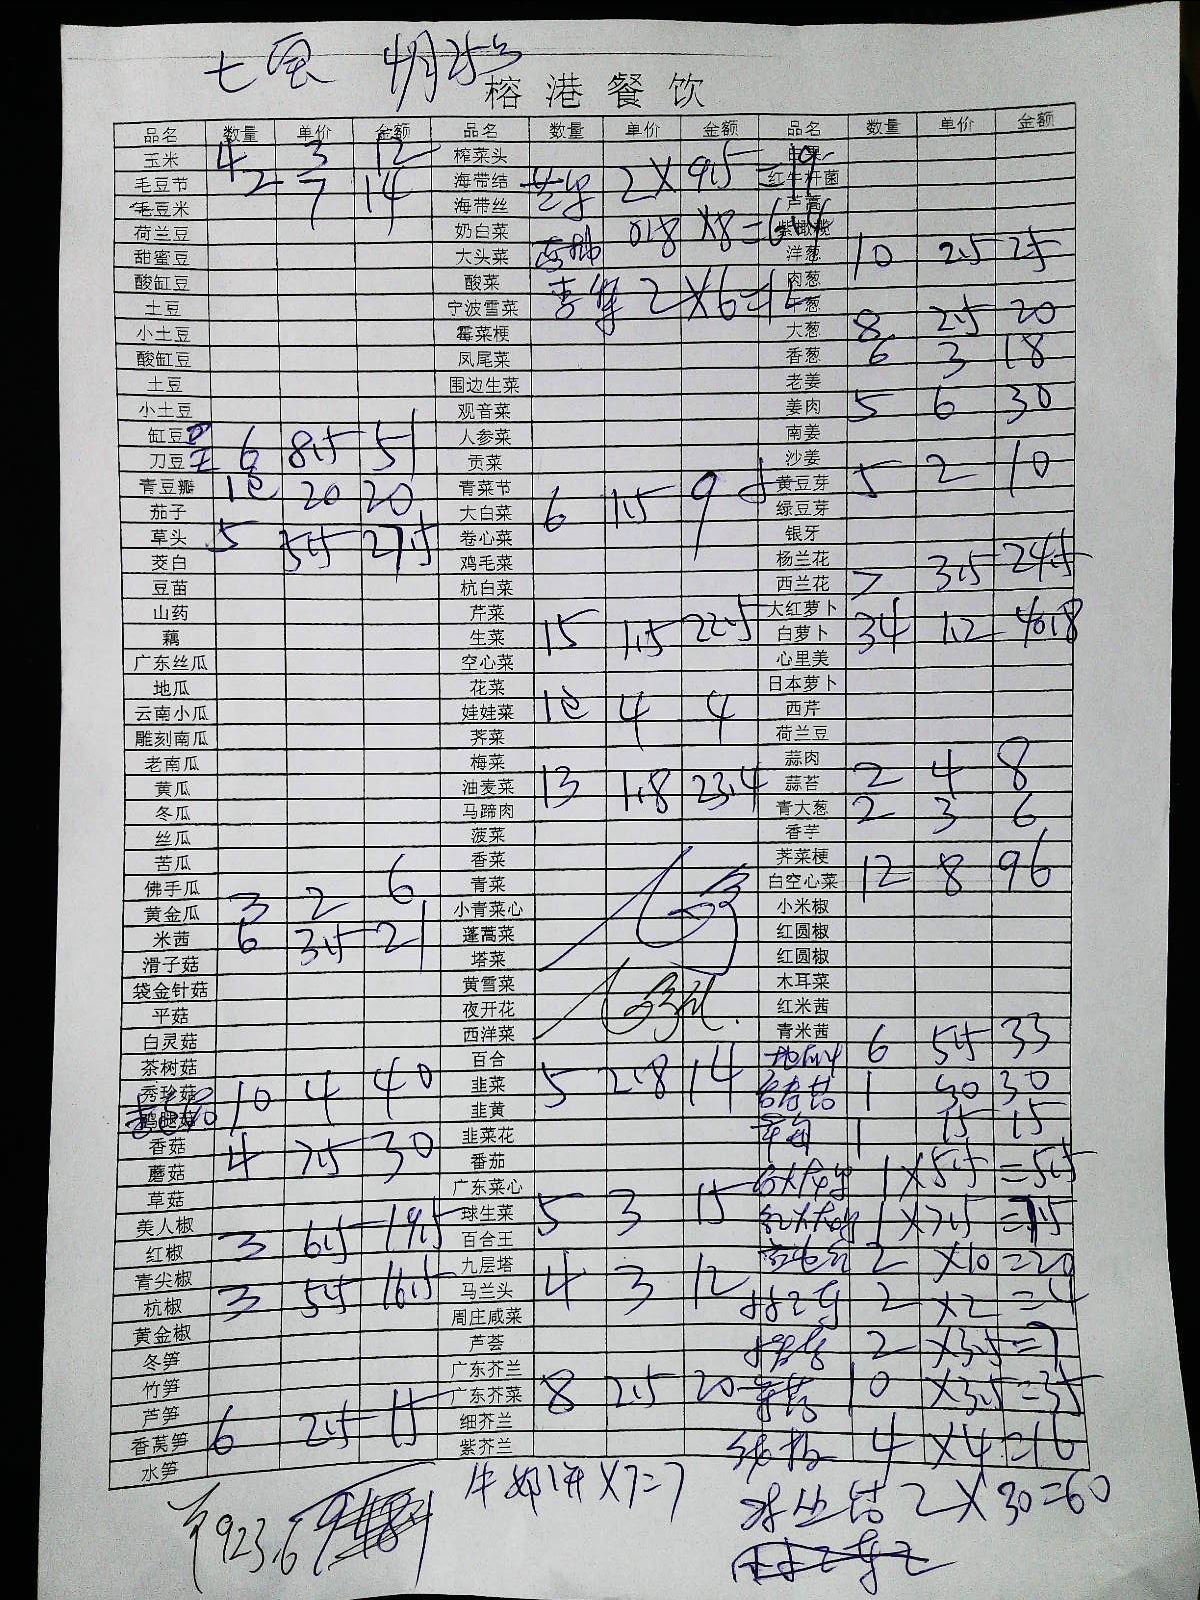 4月25号
榕港餐饮
品名 数量 单价 金额 品名 数量 单价 金额 品名 数量 单价 金额
玉米 4 3 12 榨菜头
毛豆节 2 7 14 海带结 2×9.5=19 红牛杆菌
毛豆米 海带丝 芦蒿
荷兰豆 奶白菜 0.8×8=6.4 紫橄榄
甜蜜豆 大头菜 洋葱 10 2.5 25
酸缸豆 酸菜 2×6=12 肉葱
土豆 宁波雪菜 干葱
小土豆 霉菜梗 大葱 8 2.5 20
酸缸豆 凤尾菜 香葱 6 3 18
土豆 围边生菜 老姜
小土豆 观音菜 姜肉 5 6 30
缸豆 6 8.5 51 人参菜 南姜
刀豆 6 贡菜 沙姜
青豆瓣 1包 20 20 青菜节 黄豆芽 5 2 10
茄子 大白菜 6 1.5 9 绿豆芽
草头 5 5.5 27.5 卷心菜 银牙
茭白 鸡毛菜 杨兰花
豆苗 杭白菜 西兰花 7 3.5 24.5
山药 芹菜 大红萝卜
藕 生菜 15 1.5 22.5 白萝卜 34 1.2 40.8
广东丝瓜 空心菜 心里美
地瓜 花菜 日本萝卜
云南小瓜 娃娃菜 1包 4 4 西芹
雕刻南瓜 荠菜 荷兰豆
老南瓜 梅菜 蒜肉
黄瓜 油麦菜 13 1.8 23.4 蒜苔 2 4 8
冬瓜 马蹄肉 青大葱 2 3 6
丝瓜 菠菜 香芋
苦瓜 香菜 荠菜梗
佛手瓜 青菜 白空心菜 12 8 96
黄金瓜 3 2 6 小青菜心 小米椒
米茜 6 3.5 21 蓬蒿菜 红圆椒
滑子菇 塔菜 红圆椒
袋金针菇 黄雪菜 木耳菜
平菇 夜开花 红米茜
白灵菇 西洋菜 青米茜 6 5.5 33
茶树菇 百合
秀珍菇 10 4 40 韭菜 5 2.8 14 1 30 30
鸡腿菇 韭黄 1 15 15
香菇 韭菜花
蘑菇 4 7.5 30 番茄 1×5.5=5.5
草菇 广东菜心
美人椒 球生菜 5 3 15 1×7.5=7.5
红椒 3 6.5 19.5 百合王
青尖椒 九层塔 2×10=20
杭椒 3 5.5 16.5 马兰头 4 3 12 2×2=4
黄金椒 周庄咸菜
冬笋 芦荟 2×3.5=7
竹笋 广东芥兰
芦笋 广东芥菜 8 2.5 20 10×3.5=35
香莴笋 6 2.5 15 细芥兰
水笋 紫芥兰 4×4=16
×7=7
2×30=60
923.6